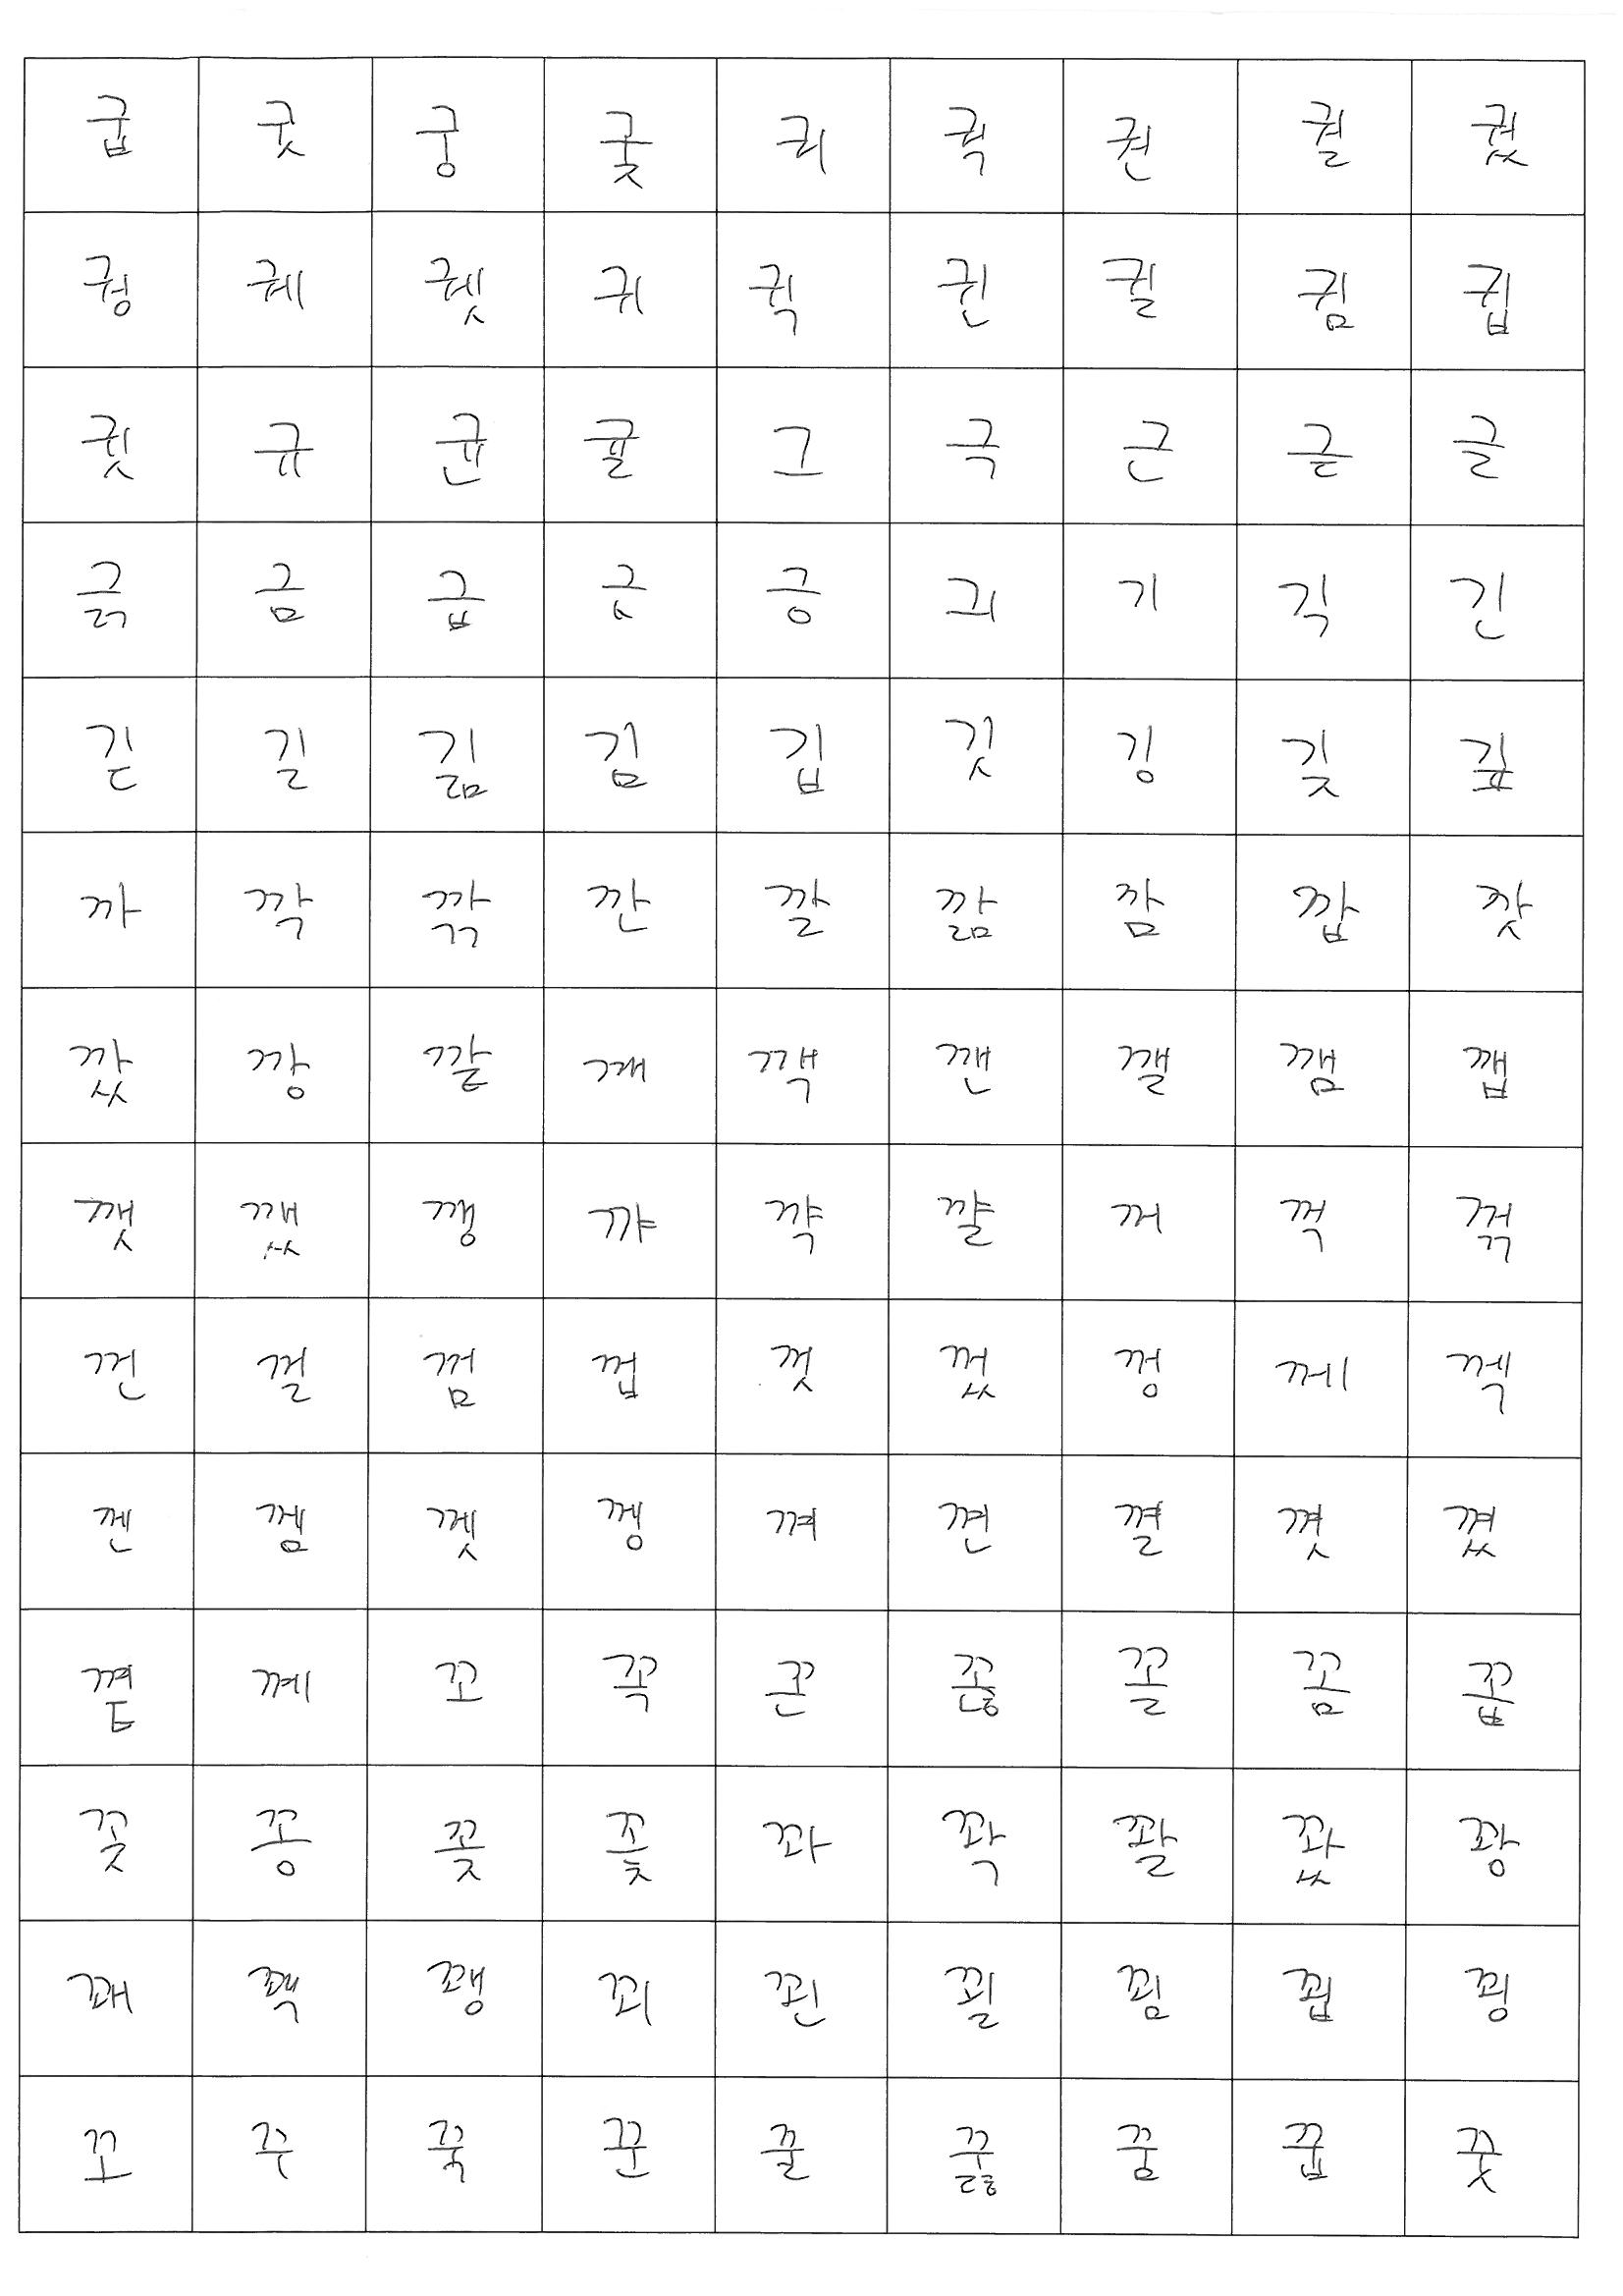 굽 굿 궁 궂 궈 궉 권 궐 궜
궝 궤 궷 귀 귁 귄 귈 귐 귑
귓 규 균 귤 그 극 근 귿 글
긁 금 급 긋 긍 긔 기 긱 긴
긷 길 긺 김 깁 깃 깅 깆 깊
까 깍 깎 깐 깔 깖 깜 깝 깟
깠 깡 깥 깨 깩 깬 깰 깸 깹
깻 깼 깽 꺄 꺅 꺌 꺼 꺽 꺾
껀 껄 껌 껍 껏 껐 껑 께 껙
껜 껨 껫 껭 껴 껸 껼 꼇 꼈
꼍 꼐 꼬 꼭 꼰 꼲 꼴 꼼 꼽
꼿 꽁 꽂 꽃 꽈 꽉 꽐 꽜 꽝
꽤 꽥 꽹 꾀 꾄 꾈 꾐 꾑 꾕
꾜 꾸 꾹 꾼 꿀 꿇 꿈 꿉 꿋